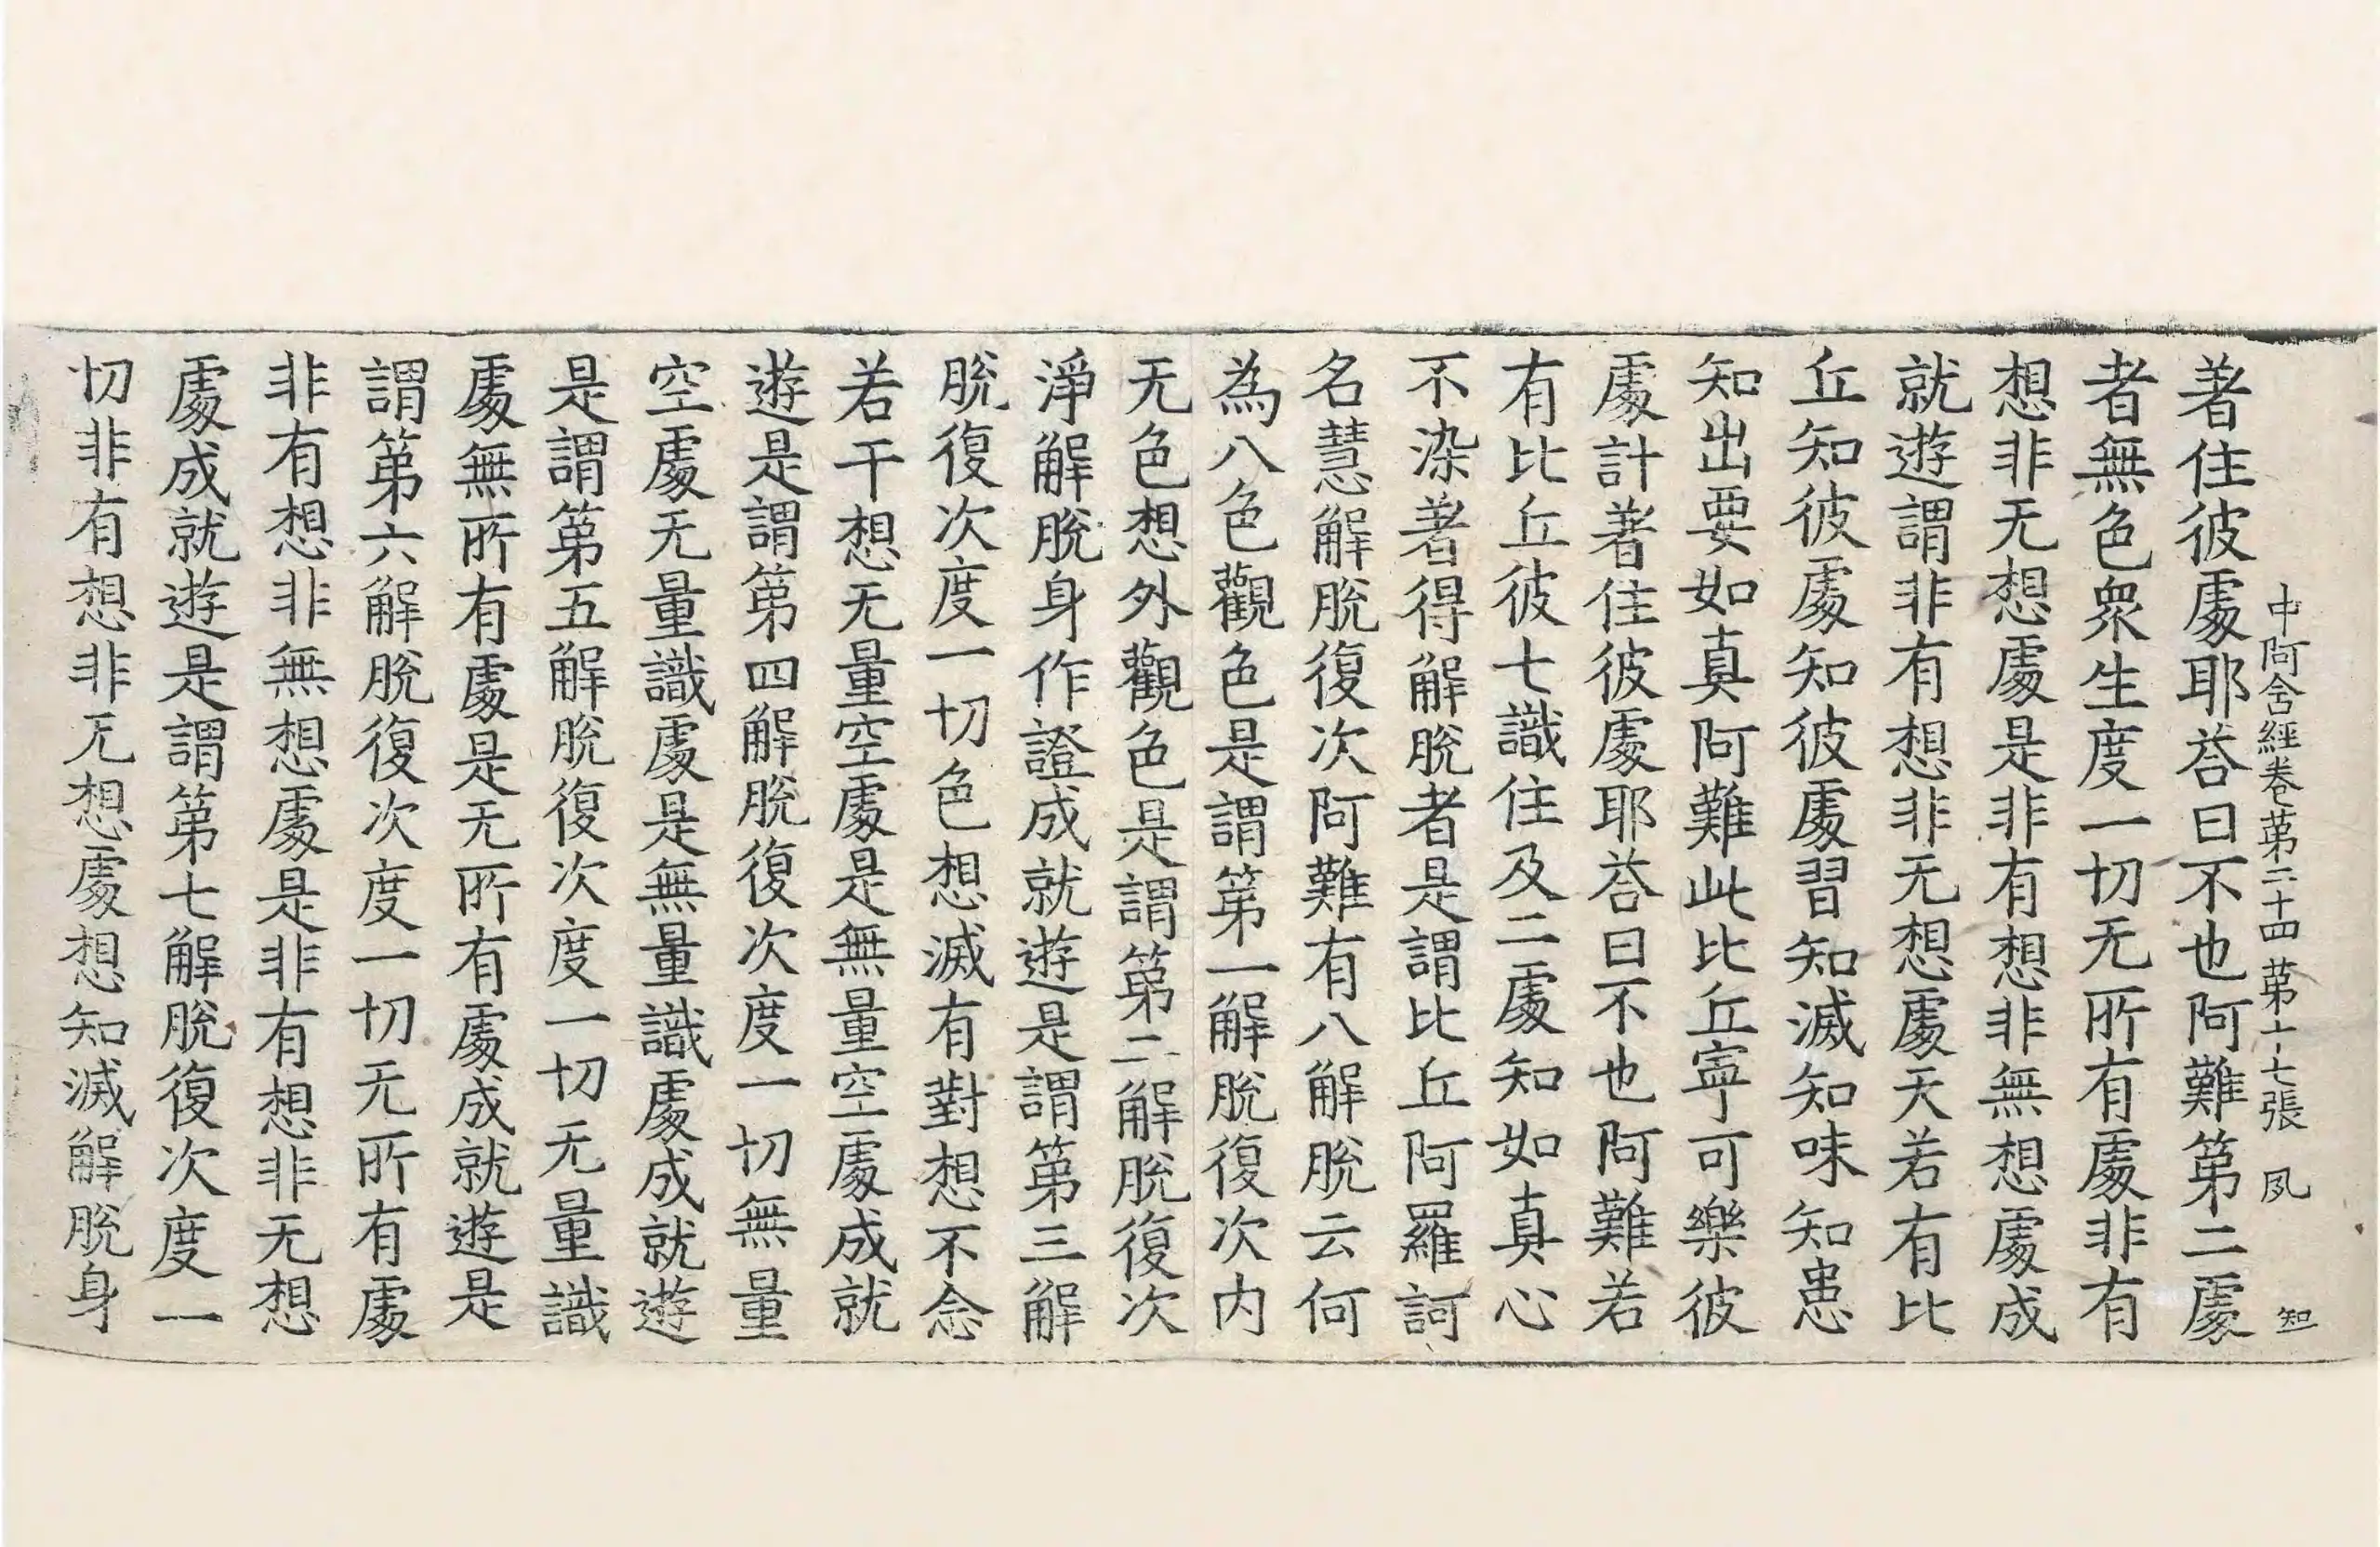 中阿含經卷第二十四 第十七張 夙 知
著住彼處耶荅曰不也阿難第二處
者無色衆生度一切无所有處非有
想非无想處是非有想非無想處成
就遊謂非有想非无想處天若有比
丘知彼處知彼處習知滅知味知患
知出要如真阿難此比丘寧可樂彼
處計著住彼處耶荅曰不也阿難若
有比丘彼七識住及二處知如真心
不染著得解脫者是謂比丘阿羅訶
名慧解脫復次阿難有八解脫云何
為八色觀色是謂第一解脫復次内
无色想外觀色是謂第二解脫復次
淨解脫身作證成就遊是謂第三解
脫復次度一切色想滅有對想不念
若干想无量空處是無量空處成就
遊是謂第四解脫復次度一切無量
空處无量識處是無量識處成就遊
是謂第五解脫復次度一切无量識
處無所有處是无所有處成就遊是
謂第六解脫復次度一切无所有處
非有想非無想處是非有想非无想
處成就遊是謂第七解脫復次度一
切非有想非无想處想知滅解脫身